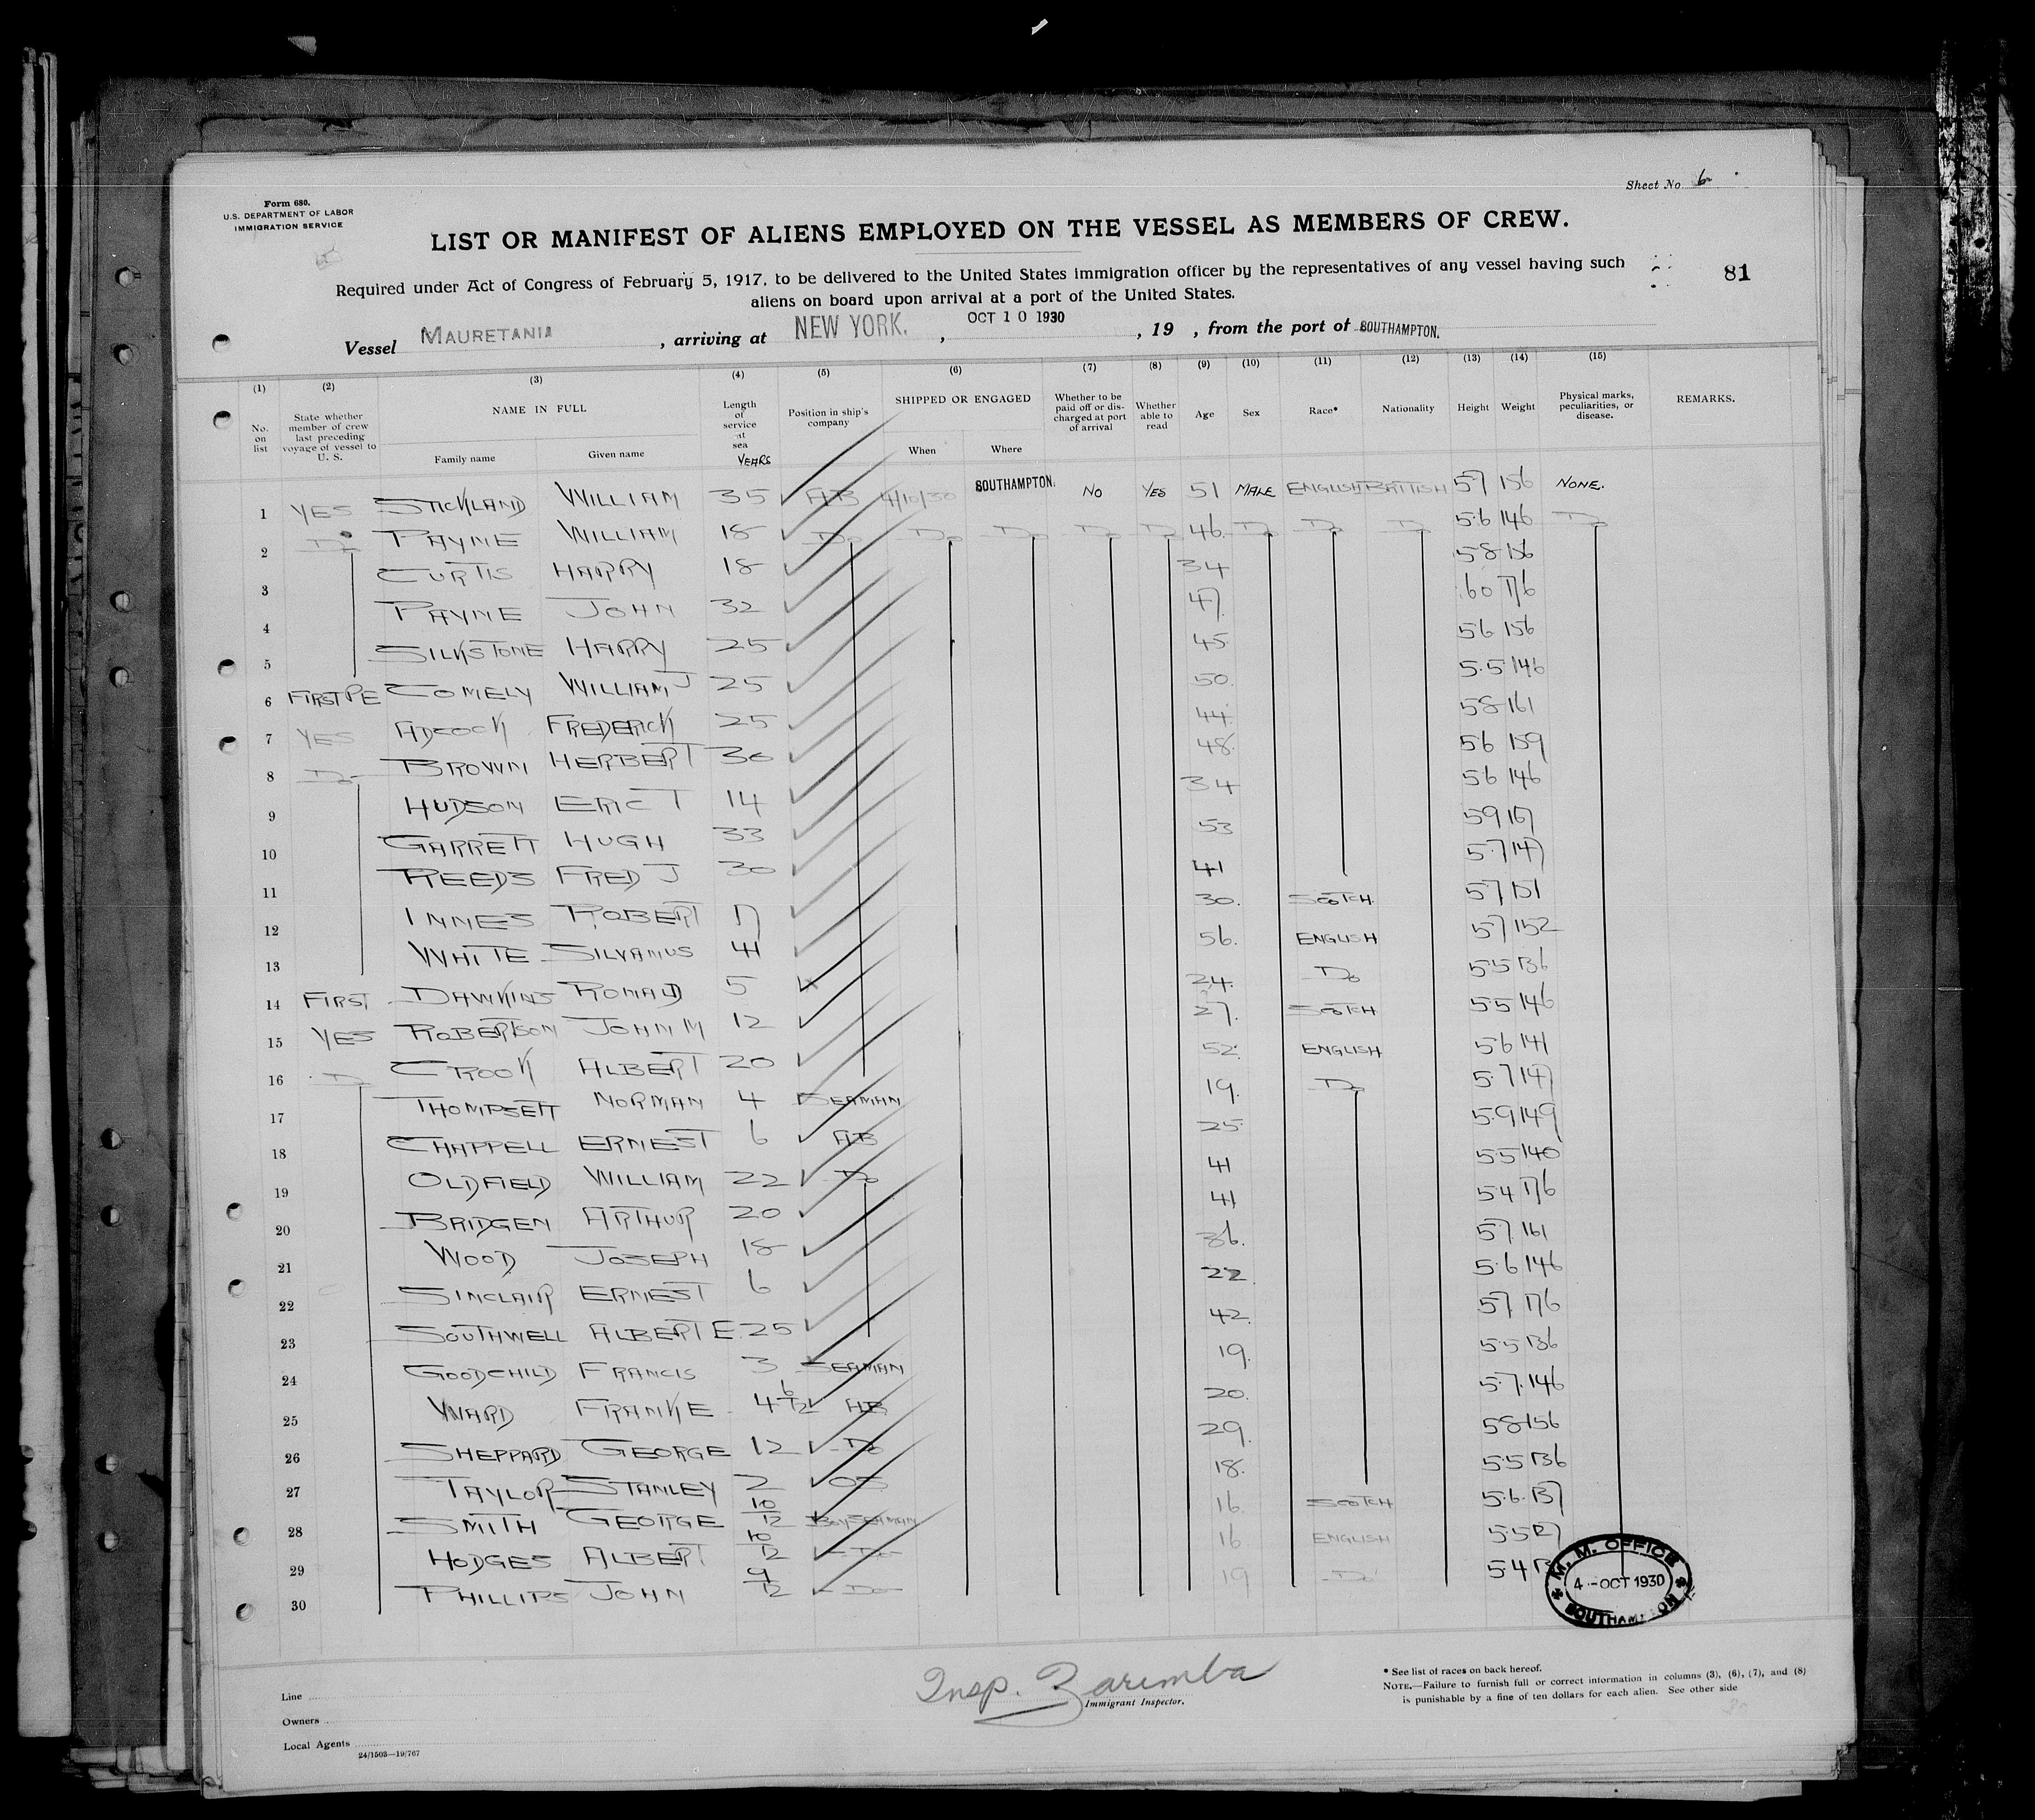 Sheet No. 6
Form 680.
U.S. DEPARTMENT OF LABOR
IMMIGRATION SERVICE
LIST OR MANIFEST OF ALIENS EMPLOYED ON THE VESSEL AS MEMBERS OF CREW.
81
Required under Act of Congress of February 5, 1917, to be delivered to the United States immigration officer by the representatives of any vessel having such
aliens on board upon arrival at a port of the United States.
Vessel MAURETANIA, arriving at NEW YORK., OCT 10 1930, 19 , from the port of SOUTHAMPTON.
(1) (2) (3) (4) (5) (6) (7) (8) (9) (10) (11) (12) (13) (14) (15)
No. on list State whether member of crew last preceding voyage of vessel to U. S. NAME IN FULL Family name Given name Length of service at sea YEARS Position in ship's company SHIPPED OR ENGAGED When Where Whether to be paid off or discharged at port of arrival Whether able to read Age Sex Race* Nationality Height Weight Physical marks, peculiarities, or disease. REMARKS.
1 YES STICKLAND WILLIAM 35 AB 4/10/30 SOUTHAMPTON. NO YES 51 MALE ENGLISH BRITISH 57 156 NONE.
2 Do PAYNE WILLIAM 18 Do Do Do Do Do 46. Do Do Do 5.6 146 Do
3 CURTIS HARRY 18 34 58 156
4 PAYNE JOHN 32 47. 60 176
5 SILKSTONE HARRY 25 45. 56 156
6 FIRST PE COMELY WILLIAM J 25 50. 5.5 146
7 YES ADCOCK FREDERICK 25 44. 58 161
8 Do BROWN HERBERT 30 48. 56 159
9 HUDSON ERIC T 14 34 56 146
10 GARRETT HUGH 33 53 59 167
11 REEDS FRED J 30 41 5.7 147
12 INNES ROBERT 17 30. SCOTCH. 57 151
13 WHITE SILVANUS 41 56. ENGLISH 57 152
14 FIRST DAWKINS RONALD 5 24. Do 5.5 136
15 YES ROBERTSON JOHN M 12 27. SCOTCH 5.5 146
16 Do CROOK ALBERT 20 52. ENGLISH 56 141
17 THOMPSETT NORMAN 4 SEAMAN 19. Do 5.7 147
18 CHAPPELL ERNEST 6 AB 25 5.9 149
19 OLDFIELD WILLIAM 22 Do 41 5.5 140
20 BRIDGEN ARTHUR 20 41 5.4 176
21 WOOD JOSEPH 18 36. 57. 161
22 SINCLAIR ERNEST 6 22. 5.6 146
23 SOUTHWELL ALBERT E. 25 42. 57. 176
24 GOODCHILD FRANCIS 3 SEAMAN 19. 5.5 136
25 WARD FRANKE 4 6/12 AB 20. 5.7. 146
26 SHEPPARD GEORGE 12 Do 29. 58 156
27 TAYLOR STANLEY 2 OS 18. 5.5 136
28 SMITH GEORGE 10/12 BOY SEAMAN 16. SCOTCH 5.6. 137
29 HODGES ALBERT 10/12 Do 16 ENGLISH 5.5 127
30 PHILLIPS JOHN 9/12 Do 19 Do 5.4
M. M. OFFICE
4 - OCT 1930
SOUTHAMPTON
Insp. Zaremba
Immigrant Inspector.
Line
Owners
Local Agents
24/1503—19/767
* See list of races on back hereof.
NOTE.—Failure to furnish full or correct information in columns (3), (6), (7), and (8)
is punishable by a fine of ten dollars for each alien. See other side